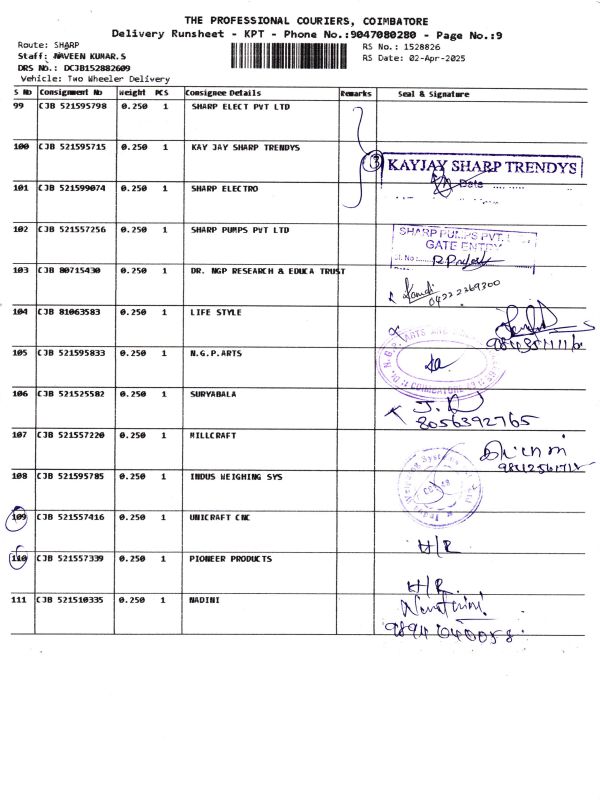 THE PROFESSIONAL COURIERS, COIMBATORE
Delivery Runsheet - KPT - Phone No.:9047080280 - Page No.:9
Route: SHARP
RS No.: 1528826
Staff: NAVEEN KUMAR.S
RS Date: 02-Apr-2025
DRS No.: DCJB152882609
Vehicle: Two Wheeler Delivery
S No Consignment No Weight PCS Consignee Details Remarks Seal & Signature
99 CJB 521595798 0.250 1 SHARP ELECT PVT LTD
100 CJB 521595715 0.250 1 KAY JAY SHARP TRENDYS
3 KAYJAY SHARP TRENDYS
Date
101 CJB 521599074 0.250 1 SHARP ELECTRO
102 CJB 521557256 0.250 1 SHARP PUMPS PVT LTD
SHARP PUMPS PVT.
GATE ENTRY
Sl. No:
103 CJB 80715430 0.250 1 DR. NGP RESEARCH & EDUCA TRUST
04222369300
104 CJB 81063583 0.250 1 LIFE STYLE
105 CJB 521595833 0.250 1 N.G.P.ARTS
Dr. N.G.P. ARTS AND
COIMBATORE
106 CJB 521525582 0.250 1 SURYABALA
8056392765
107 CJB 521557220 0.250 1 MILLCRAFT
108 CJB 521595785 0.250 1 INDUS WEIGHING SYS
109 CJB 521557416 0.250 1 UNICRAFT CNC
H/R
110 CJB 521557339 0.250 1 PIONEER PRODUCTS
H/R.
111 CJB 521510335 0.250 1 NADINI